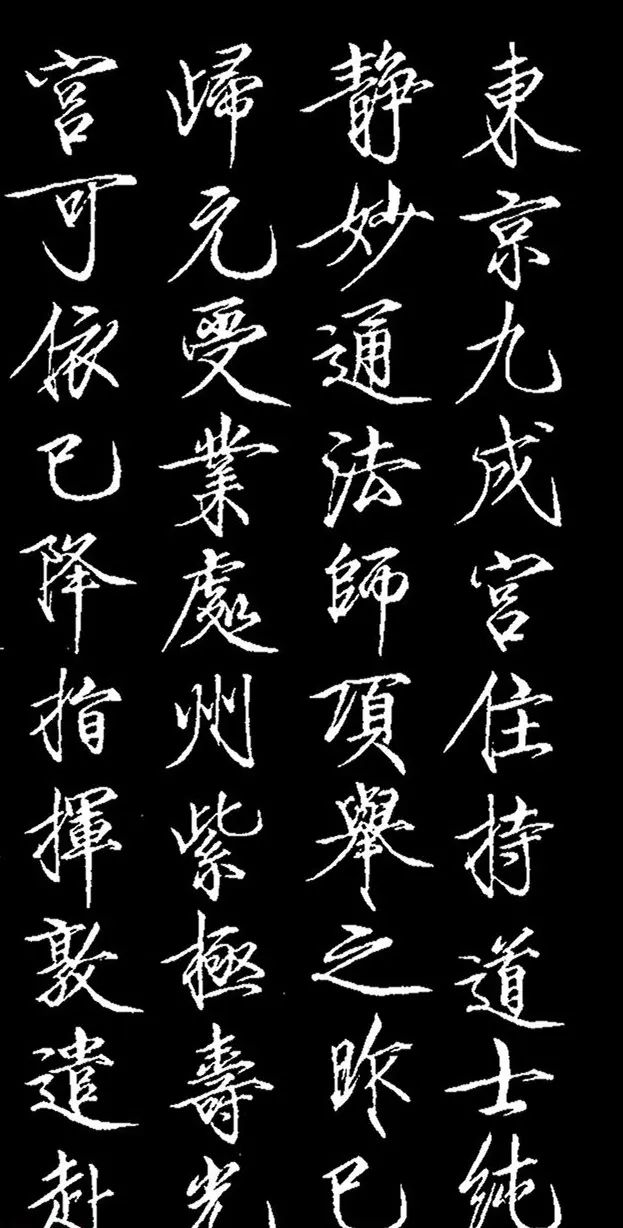 東京九成宮住持道士純
靜妙通法師項舉之昨已
歸元受業處州紫極壽光
宮可依已降指揮敦遣赴